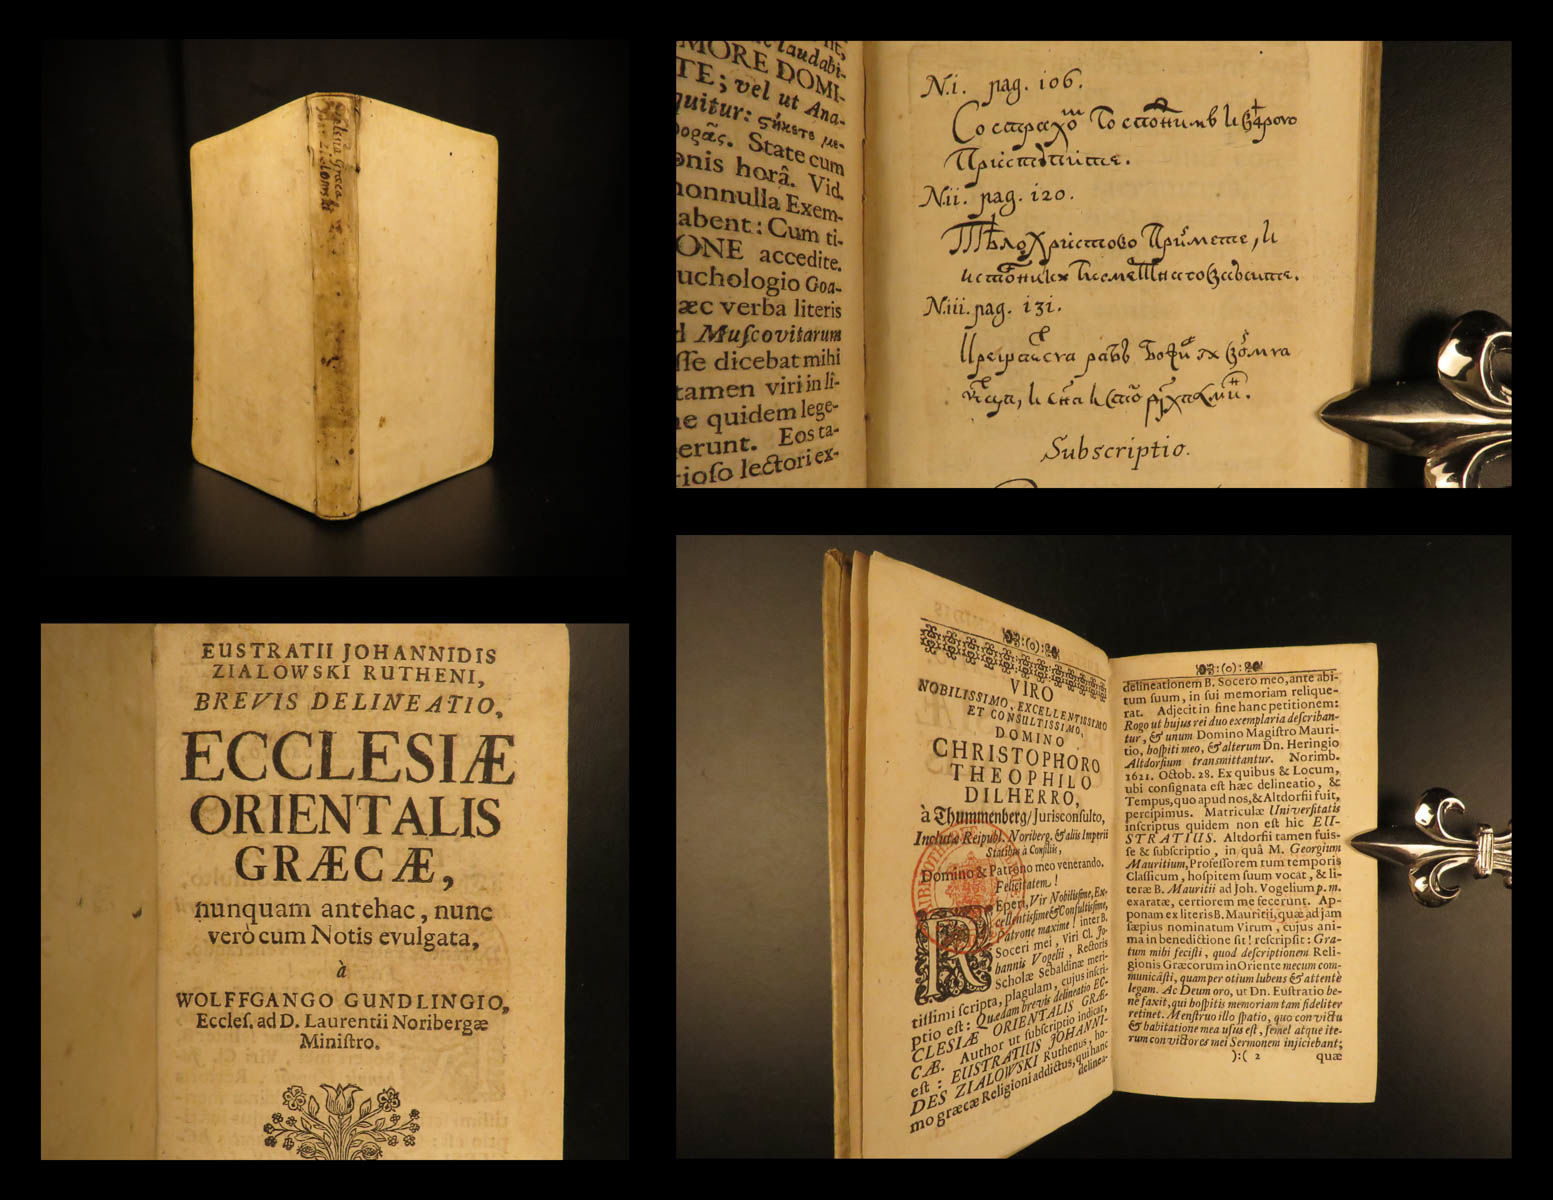 Ecclesia Græca
MORE DOMI-
TE; vel ut Ana-
quitur: ςήκετε με-
State cum
onis horâ. Vid.
nonnulla Exem-
abent: Cum ti-
IONE accedite.
uchologio Goa-
æc verba literis
d Muscovitarum
sse dicebat mihi
tamen viri in li-
ne quidem lege-
erunt. Eos ta-
rioso lectori ex-
N.i. pag. 106.
Пристꙋпите.
N.ii. pag. 120.
Тѣло Христово Примете, и
N.iii. pag. 131.
Subscriptio.
EUSTRATII JOHANNIDIS
ZIALOWSKI RUTHENI,
BREVIS DELINEATIO,
ECCLESIÆ
ORIENTALIS
GRÆCÆ,
nunquam antehac, nunc
verò cum Notis evulgata,
à
WOLFFGANGO GUNDLINGIO,
Eccles. ad D. Laurentii Noribergæ
Ministro.
:(o):
VIRO
NOBILISSIMO, EXCELLENTISSIMO
ET CONSULTISSIMO,
DOMINO
CHRISTOPHORO
THEOPHILO
DILHERRO,
à Thummenberg/Jurisconsulto,
Inclutæ Reipubl. Noriberg. & aliis Imperii
Statibus à Consiliis,
Domino & Patrono meo venerando.
Felicitatem!
REperi, Vir Nobilissime, Ex-
cellentissime & Consultissime,
Patrone maxime! inter B.
Soceri mei, Viri Cl. Jo-
hannis Vogelii, Rectoris
Scholæ Sebaldinæ meri-
tissimi scripta, plagulam, cujus inscri-
ptio est: Quædam brevis delineatio EC-
CLESIÆ ORIENTALIS GRÆ-
CÆ. Author ut subscriptio indicat,
est: EUSTRATIUS JOHANNI-
DES ZIALOWSKI Ruthenus, ho-
mo græcæ Religioni addictus, qui hanc
delinea-
:(o):
delineationem B. Socero meo, ante abi-
tum suum, in sui memoriam relique-
rat. Adjecit in fine hanc petitionem:
Rogo ut hujus rei duo exemplaria describan-
tur, & unum Domino Magistro Mauri-
tio, hospiti meo, & alterum Dn. Heringio
Altdorfium transmittantur. Norimb.
1621. Octob. 28. Ex quibus & Locum,
ubi consignata est hæc delineatio, &
Tempus, quo apud nos, & Altdorfii fuit,
percipimus. Matriculæ Universitatis
inscriptus quidem non est hic EU-
STRATIUS. Altdorfii tamen fuis-
se & subscriptio, in quâ M. Georgium
Mauritium, Professorem tum temporis
Classicum, hospitem suum vocat, & li-
teræ B. Mauritii ad Joh. Vogelium p.m.
exaratæ, certiorem me fecerunt. Ap-
ponam ex literis B. Mauritii, quæ ad jam
sæpius nominatum Virum, cujus ani-
ma in benedictione sit! rescripsit: Gra-
tum mihi fecisti, quod descriptionem Reli-
gionis Græcorum in Oriente mecum com-
municâsti, quam per otium lubens & attentè
legam. Ac Deum oro, ut Dn. Eustratio be-
ne faxit, qui hospitis memoriam tam fideliter
retinet. Menstruo illo spatio, quo convictu
& habitatione mea usus est, semel atque ite-
rum convictores mei Sermonem injiciebant;
):( 2 quæ